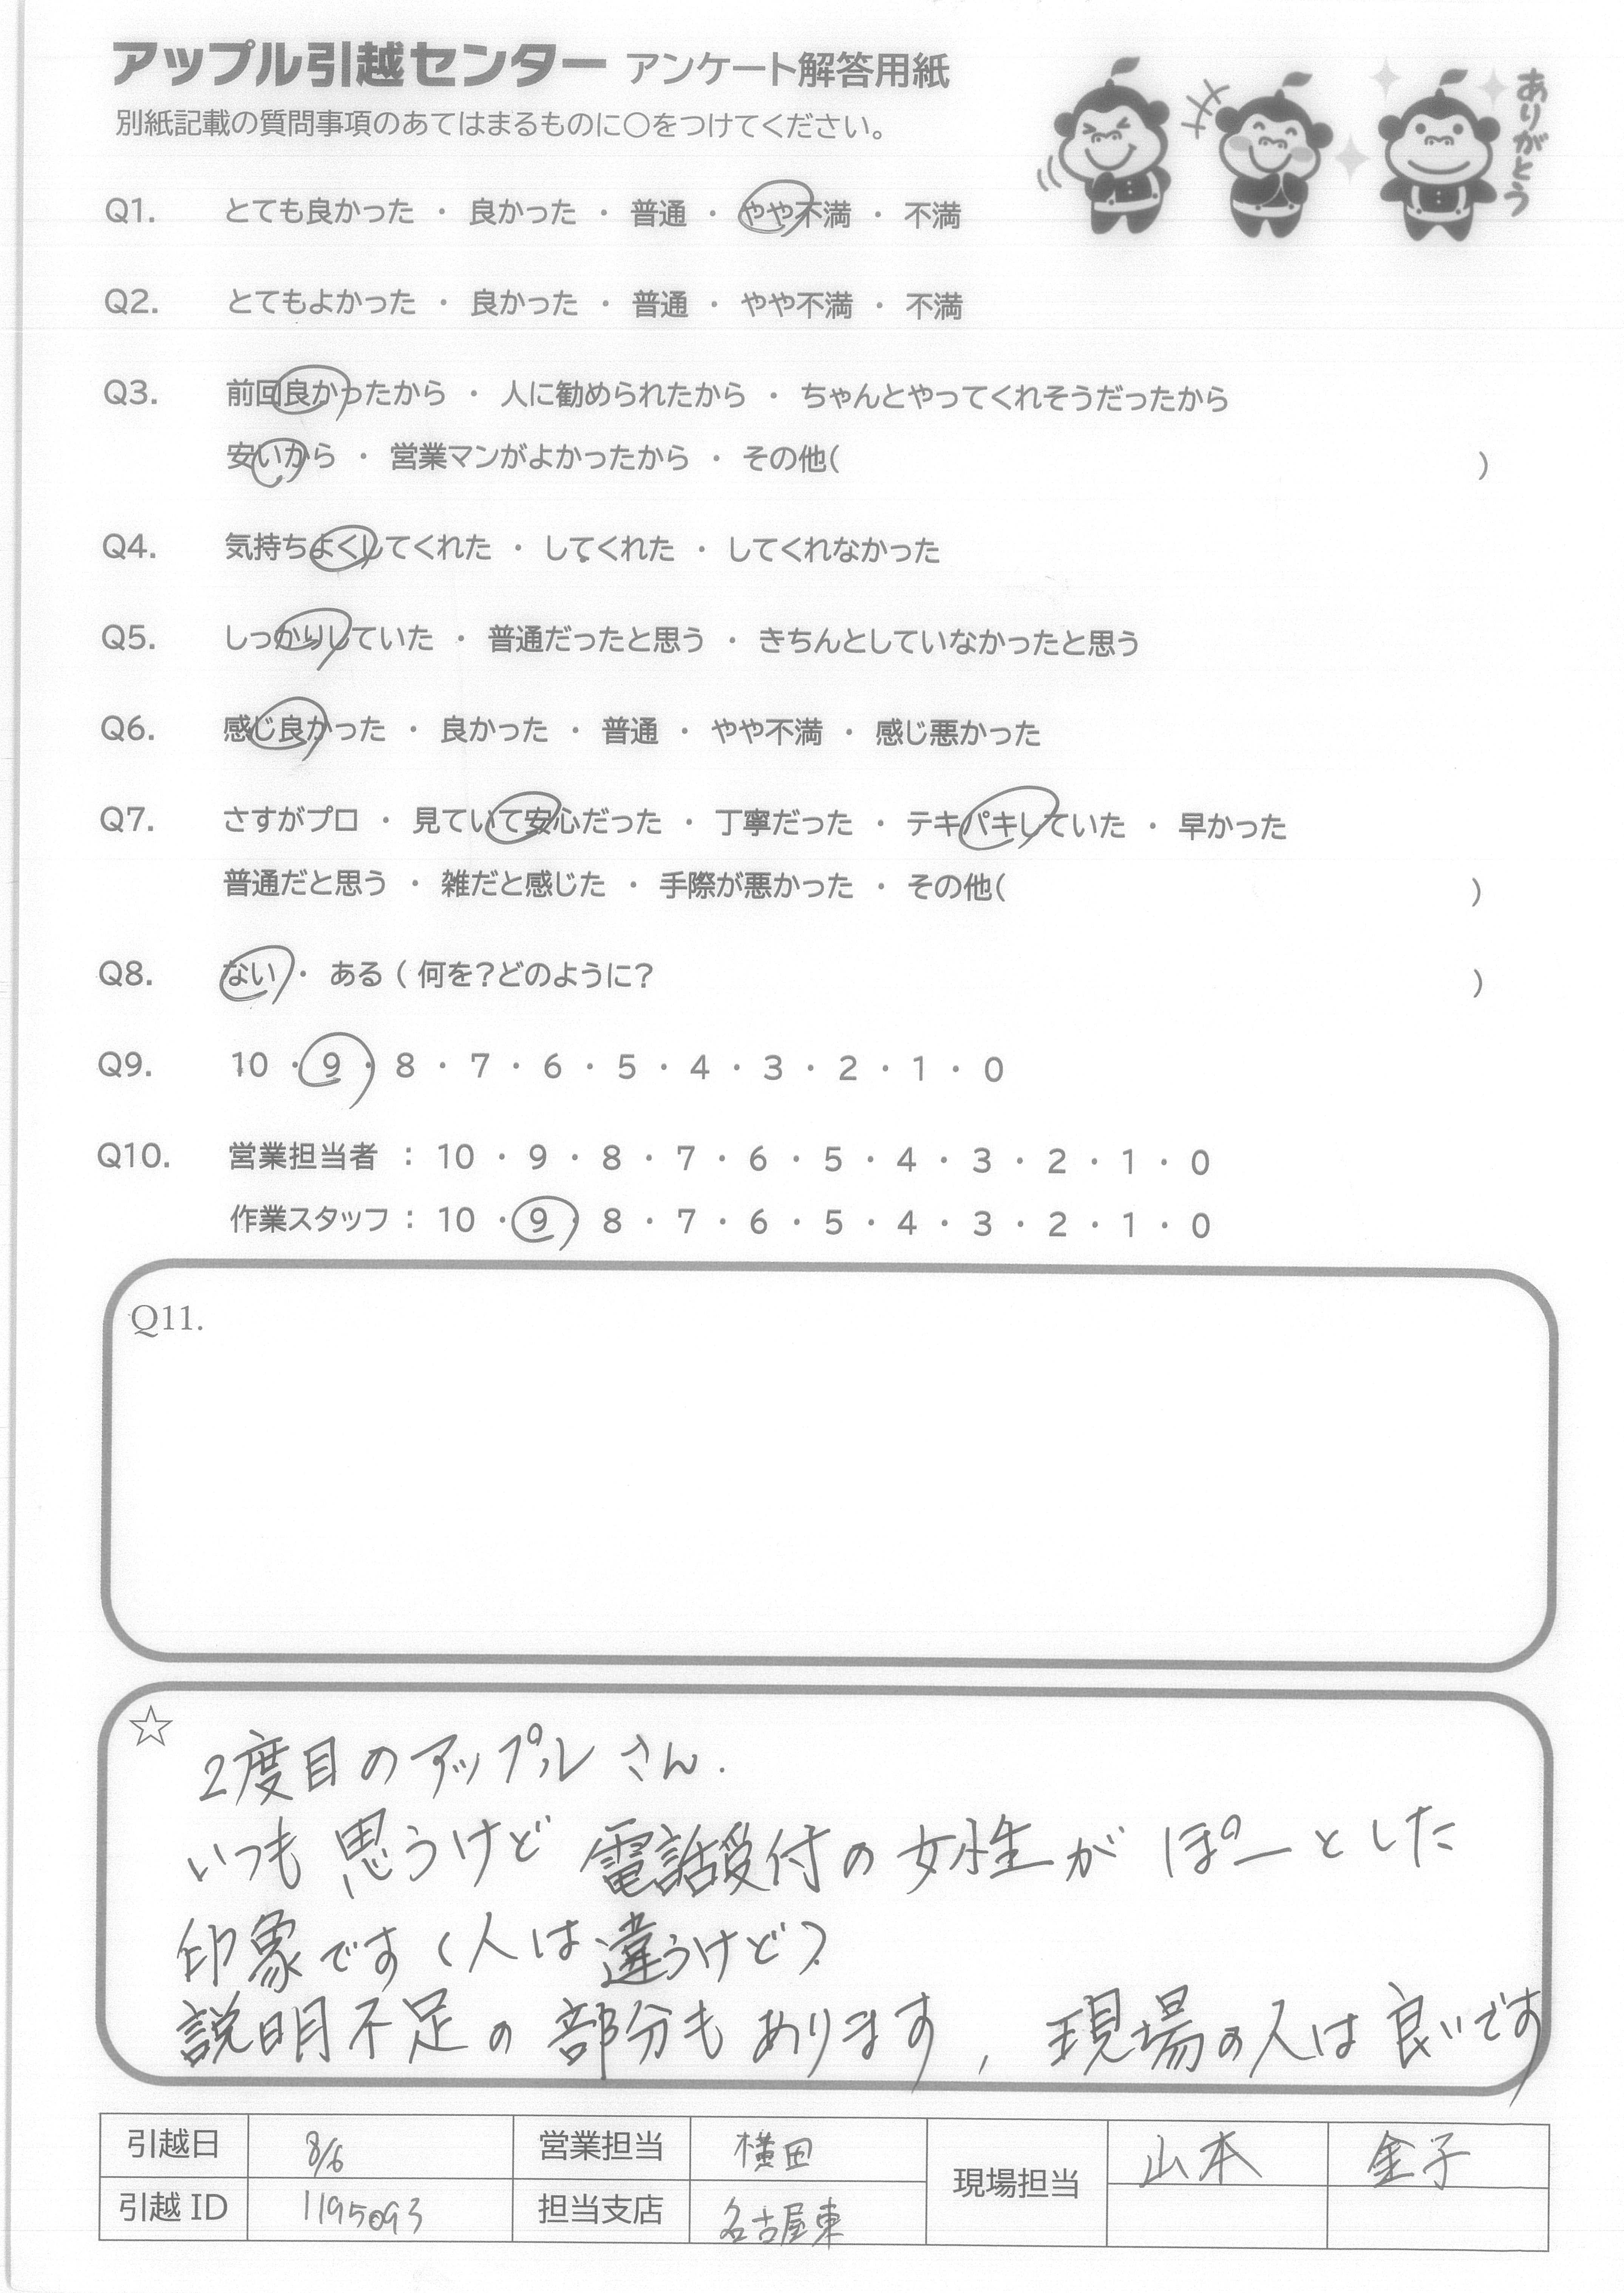 アップル引越センター アンケート解答用紙
別紙記載の質問事項のあてはまるものに○をつけてください。
ありがとう
Q1. とても良かった ・ 良かった ・ 普通 ・ やや不満 ・ 不満
Q2. とてもよかった ・ 良かった ・ 普通 ・ やや不満 ・ 不満
Q3. 前回良かったから ・ 人に勧められたから ・ ちゃんとやってくれそうだったから
安いから ・ 営業マンがよかったから ・ その他( )
Q4. 気持ちよくしてくれた ・ してくれた ・ してくれなかった
Q5. しっかりしていた ・ 普通だったと思う ・ きちんとしていなかったと思う
Q6. 感じ良かった ・ 良かった ・ 普通 ・ やや不満 ・ 感じ悪かった
Q7. さすがプロ ・ 見ていて安心だった ・ 丁寧だった ・ テキパキしていた ・ 早かった
普通だと思う ・ 雑だと感じた ・ 手際が悪かった ・ その他( )
Q8. ない ・ ある ( 何を?どのように? )
Q9. 10 ・ 9 ・ 8 ・ 7 ・ 6 ・ 5 ・ 4 ・ 3 ・ 2 ・ 1 ・ 0
Q10. 営業担当者 : 10 ・ 9 ・ 8 ・ 7 ・ 6 ・ 5 ・ 4 ・ 3 ・ 2 ・ 1 ・ 0
作業スタッフ : 10 ・ 9 ・ 8 ・ 7 ・ 6 ・ 5 ・ 4 ・ 3 ・ 2 ・ 1 ・ 0
Q11.
☆ 2度目のアップルさん.
いつも思うけど電話受付の女性がぽーとした
印象です(人は違うけど)
説明不足の部分もあります, 現場の人は良いです
引越日 8/6 営業担当 横田 現場担当 山本 金子
引越 ID 1195093 担当支店 名古屋東